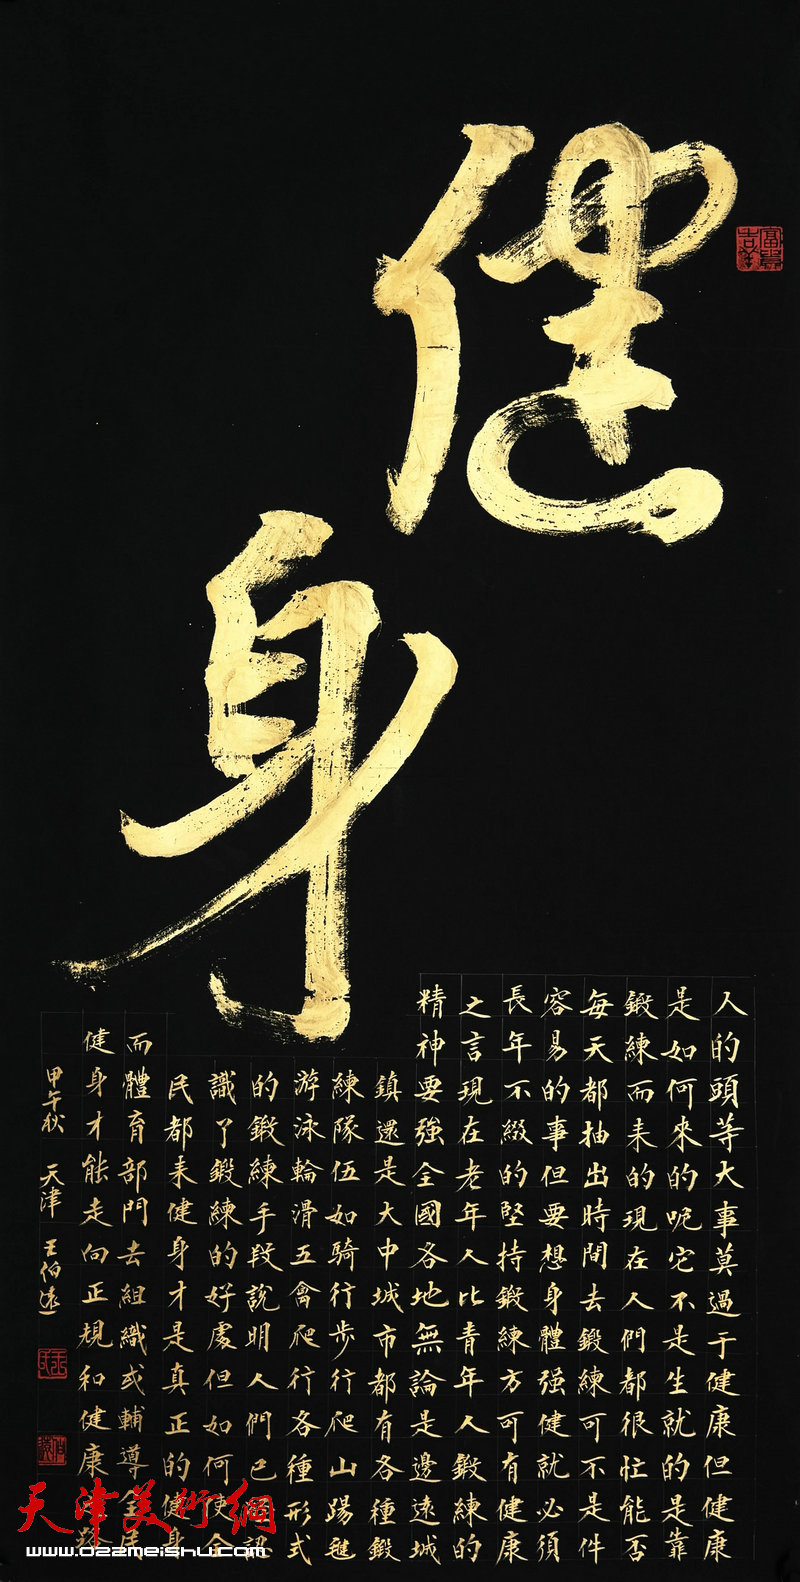 健身
人的頭等大事莫過于健康但健康
是如何來的呢它不是生就的是靠
鍛練而来的現在人們都很忙能否
每天都抽出時間去鍛練可不是件
容易的事但要想身體强健就必須
長年不綴的堅持鍛練方可有健康
之言現在老年人比青年人鍛練的
精神要強全國各地無論是邊遠城
鎮還是大中城市都有各種鍛
練隊伍如騎行步行爬山踢毽
游泳輪滑五禽爬行各種形式
的鍛練手段說明人們已認
識了鍛練的好處但如何使全
民都来健身才是真正的健身
而體育部門去組織或輔導全民
健身才能走向正規和健康路
甲午秋 天津 王伯遠
富貴吉祥
天津美術網
www.022meishu.com